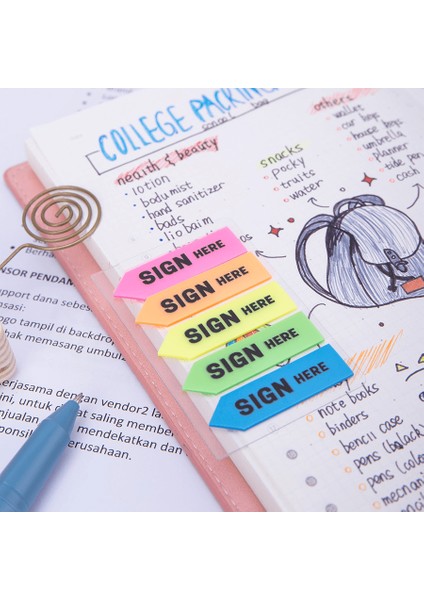 COLLEGE PACKING
health & beauty
lotion
body mist
hand sanitizer
pads
lio baim
snacks
Pocky
fruits
water
others
wallet
car keys
house keys
umbrella
planner
tide pen
cash
SIGN HERE
SIGN HERE
SIGN HERE
SIGN HERE
SIGN HERE
note books
binders
pencil case
pens (black)
pens (colo
mechani
Berhar
NSOR PENDAM
pport dana sebes
ogo tampil di backdrop
k memasang umbul
erjasama dengan vendor2 la
ntuk dapat saling member
njualan
onsihi mendekatkan
erusahaan.